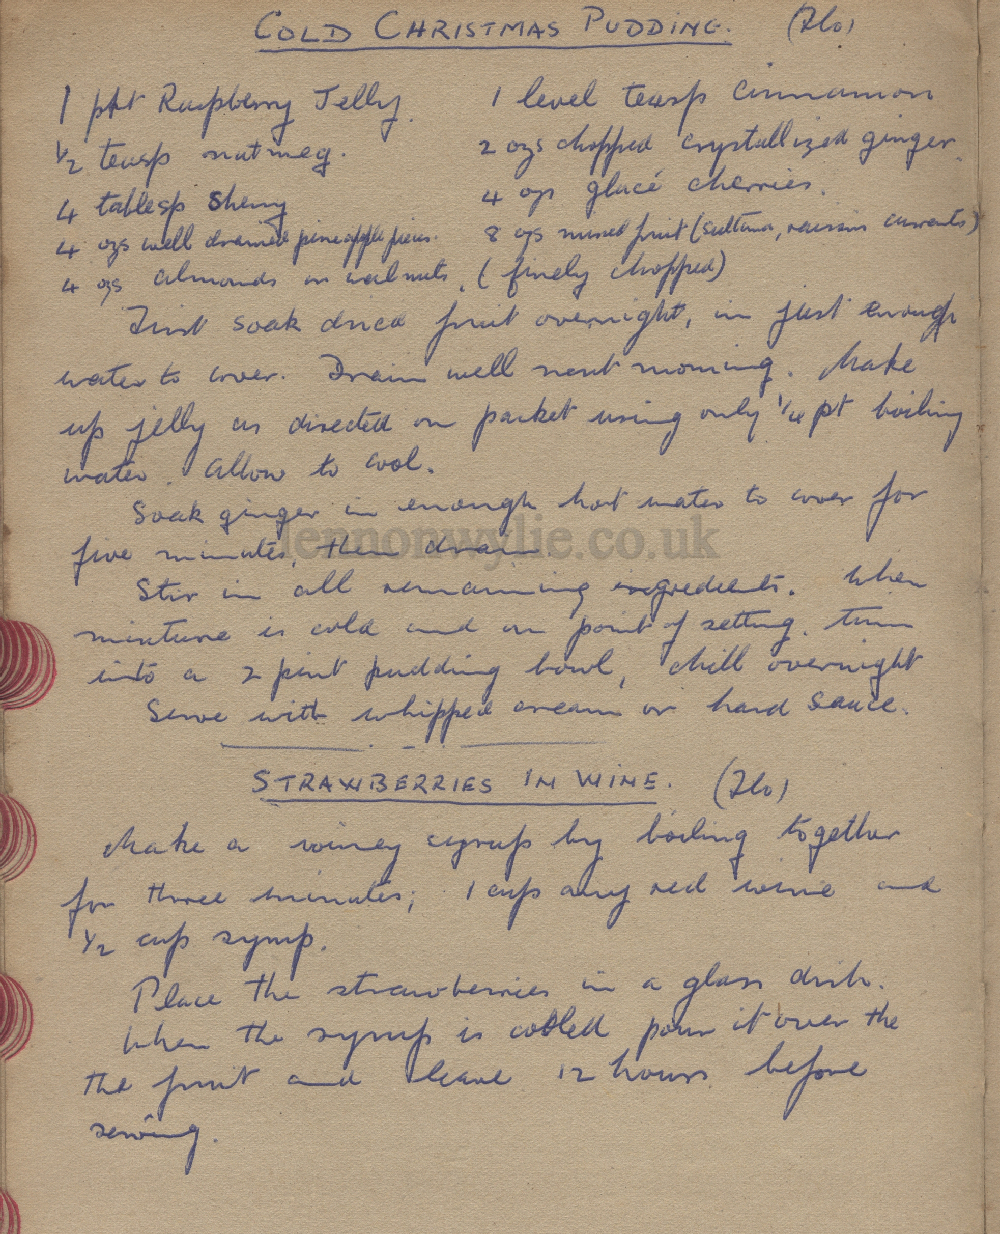 COLD CHRISTMAS PUDDING. (Flo)
1 pkt Raspberry Jelly. 1 level teasp cinnamon
1/2 teasp nutmeg. 2 ozs chopped crystallized ginger.
4 tablesp sherry 4 ozs glacé cherries.
4 ozs well drained pineapple pieces. 8 ozs mixed fruit (sultana, raisins currants)
4 ozs almonds or walnuts. (finely chopped)
First soak dried fruit overnight, in just enough
water to cover. Drain well next morning. Make
up jelly as directed on packet using only 1/4 pt boiling
water. Allow to cool.
Soak ginger in enough hot water to cover for
five minutes, then drain.
lennonwylie.co.uk
Stir in all remaining ingredients. When
mixture is cold and on point of setting. turn
into a 2 pint pudding bowl, chill overnight
Serve with whipped cream or hard sauce.
STRAWBERRIES IN WINE. (Flo)
Make a winey syrup by boiling together
for three minutes; 1 cup any red wine and
1/2 cup syrup.
Place the strawberries in a glass dish.
When the syrup is cooled pour it over the
the fruit and leave 12 hours before
serving.